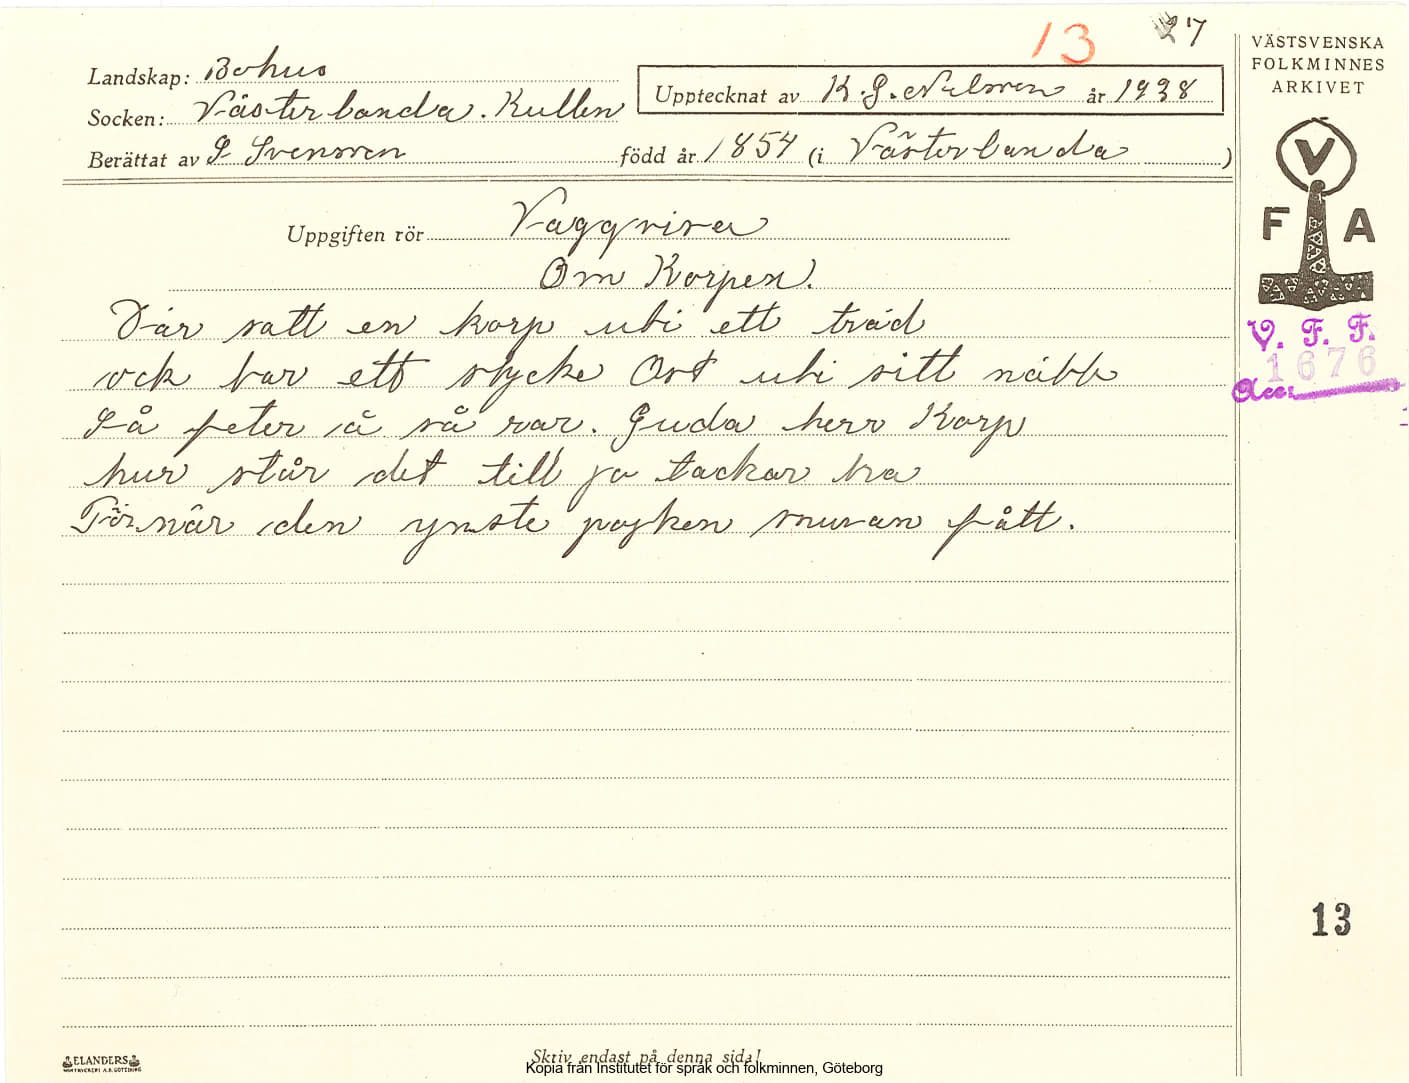 13 7
VÄSTSVENSKA
FOLKMINNES
ARKIVET
Landskap: Bohus
Socken: Västerlanda. Kullen
Upptecknat av K. G. Nelsson år 1938
Berättat av S Svensson född år 1854 (i Västerlanda)
V
F A
Uppgiften rör Vaggvisa
Om Korpen.
Där satt en korp uti ett träd
ock bar ett stycke Ost uti sitt näbb
Så feter å så rar. Guda herr Korp
hur står det till jo tackar bra
När den ynste pojken snuvan fått.
V. F. F.
1676
Acc.
13
ELANDERS
Skriv endast på denna sida!
Kopia från Institutet för språk och folkminnen, Göteborg